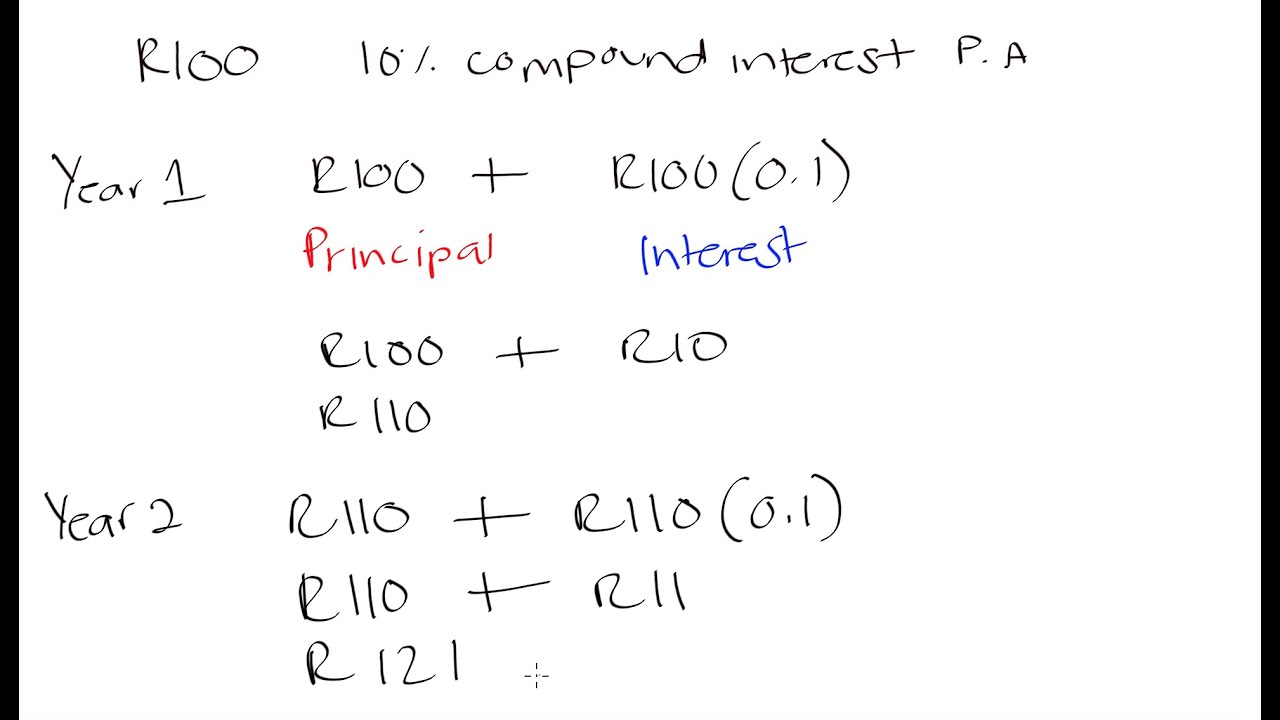 R100 10% compound interest P.A
Year 1 R100 + R100(0.1)
Principal Interest
R100 + R10
R110
Year 2 R110 + R110(0.1)
R110 + R11
R121